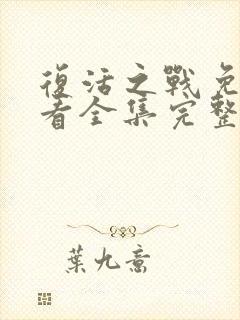 復活之戰免
看全集完整
葉九意